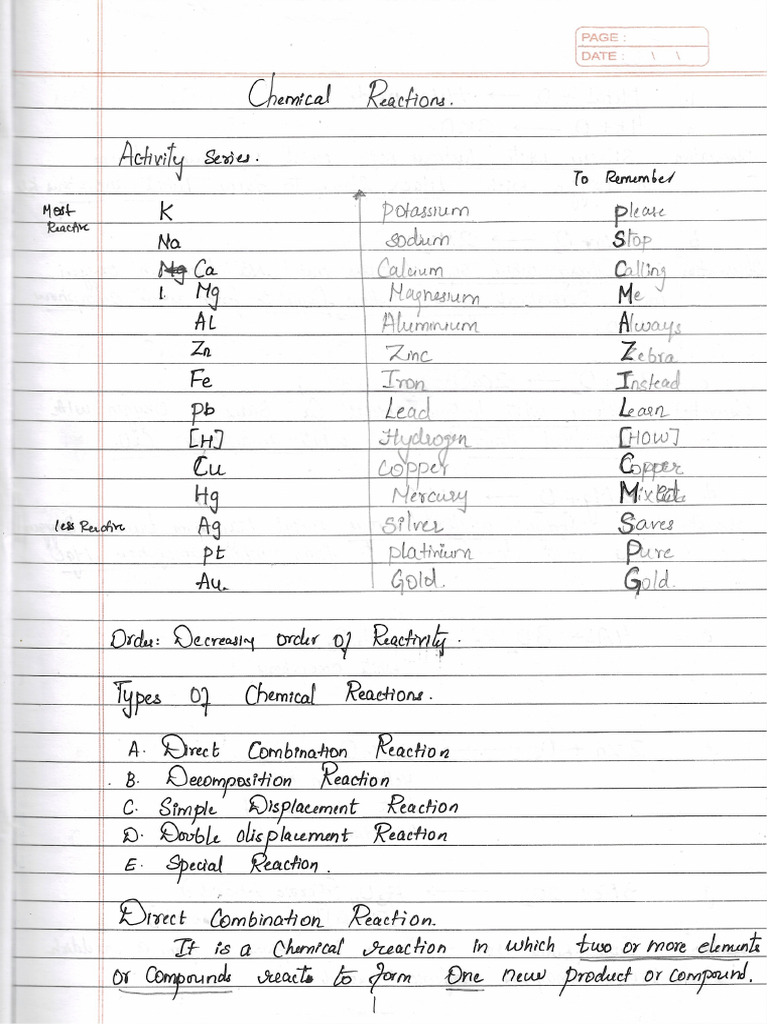 PAGE :
DATE : \ \
Chemical Reactions.
Activity Series.
To Remember
Most Reactive K Potassium Please
Na sodium Stop
Ca Calcium Calling
1. Mg Magnesium Me
Al Aluminium Always
Zn Zinc Zebra
Fe Iron Instead
Pb Lead Learn
[H] Hydrogen [HOW]
Cu Copper Copper
Hg Mercury
less Reactive Ag Silver Saves
Pt platinium Pure
Au. Gold. Gold.
Order: Decreasing order of Reactivity.
Types Of Chemical Reactions.
A. Direct Combination Reaction
B. Decomposition Reaction
C. Simple Displacement Reaction
D. Double displacement Reaction
E. Special Reaction.
Direct Combination Reaction.
It is a Chemical reaction in which two or more elements
or Compounds reacts to form One new product or compound.
1